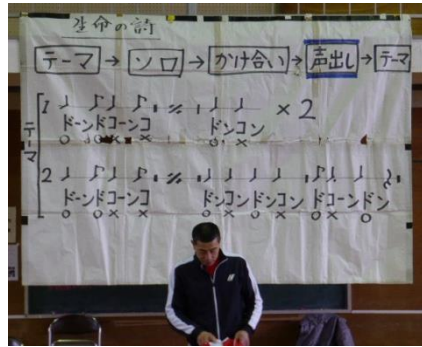 生命の詩
テーマ → ソロ → かけ合い → 声出し → テーマ
テーマ
1 × 2
ドーンドコーンコ ドンコン
○ ○ × × ○ ×
2
ドーンドコーンコ ドンコンドンコン ドコーンドン
○ ○ × × ○ × ○ × ○ × ○